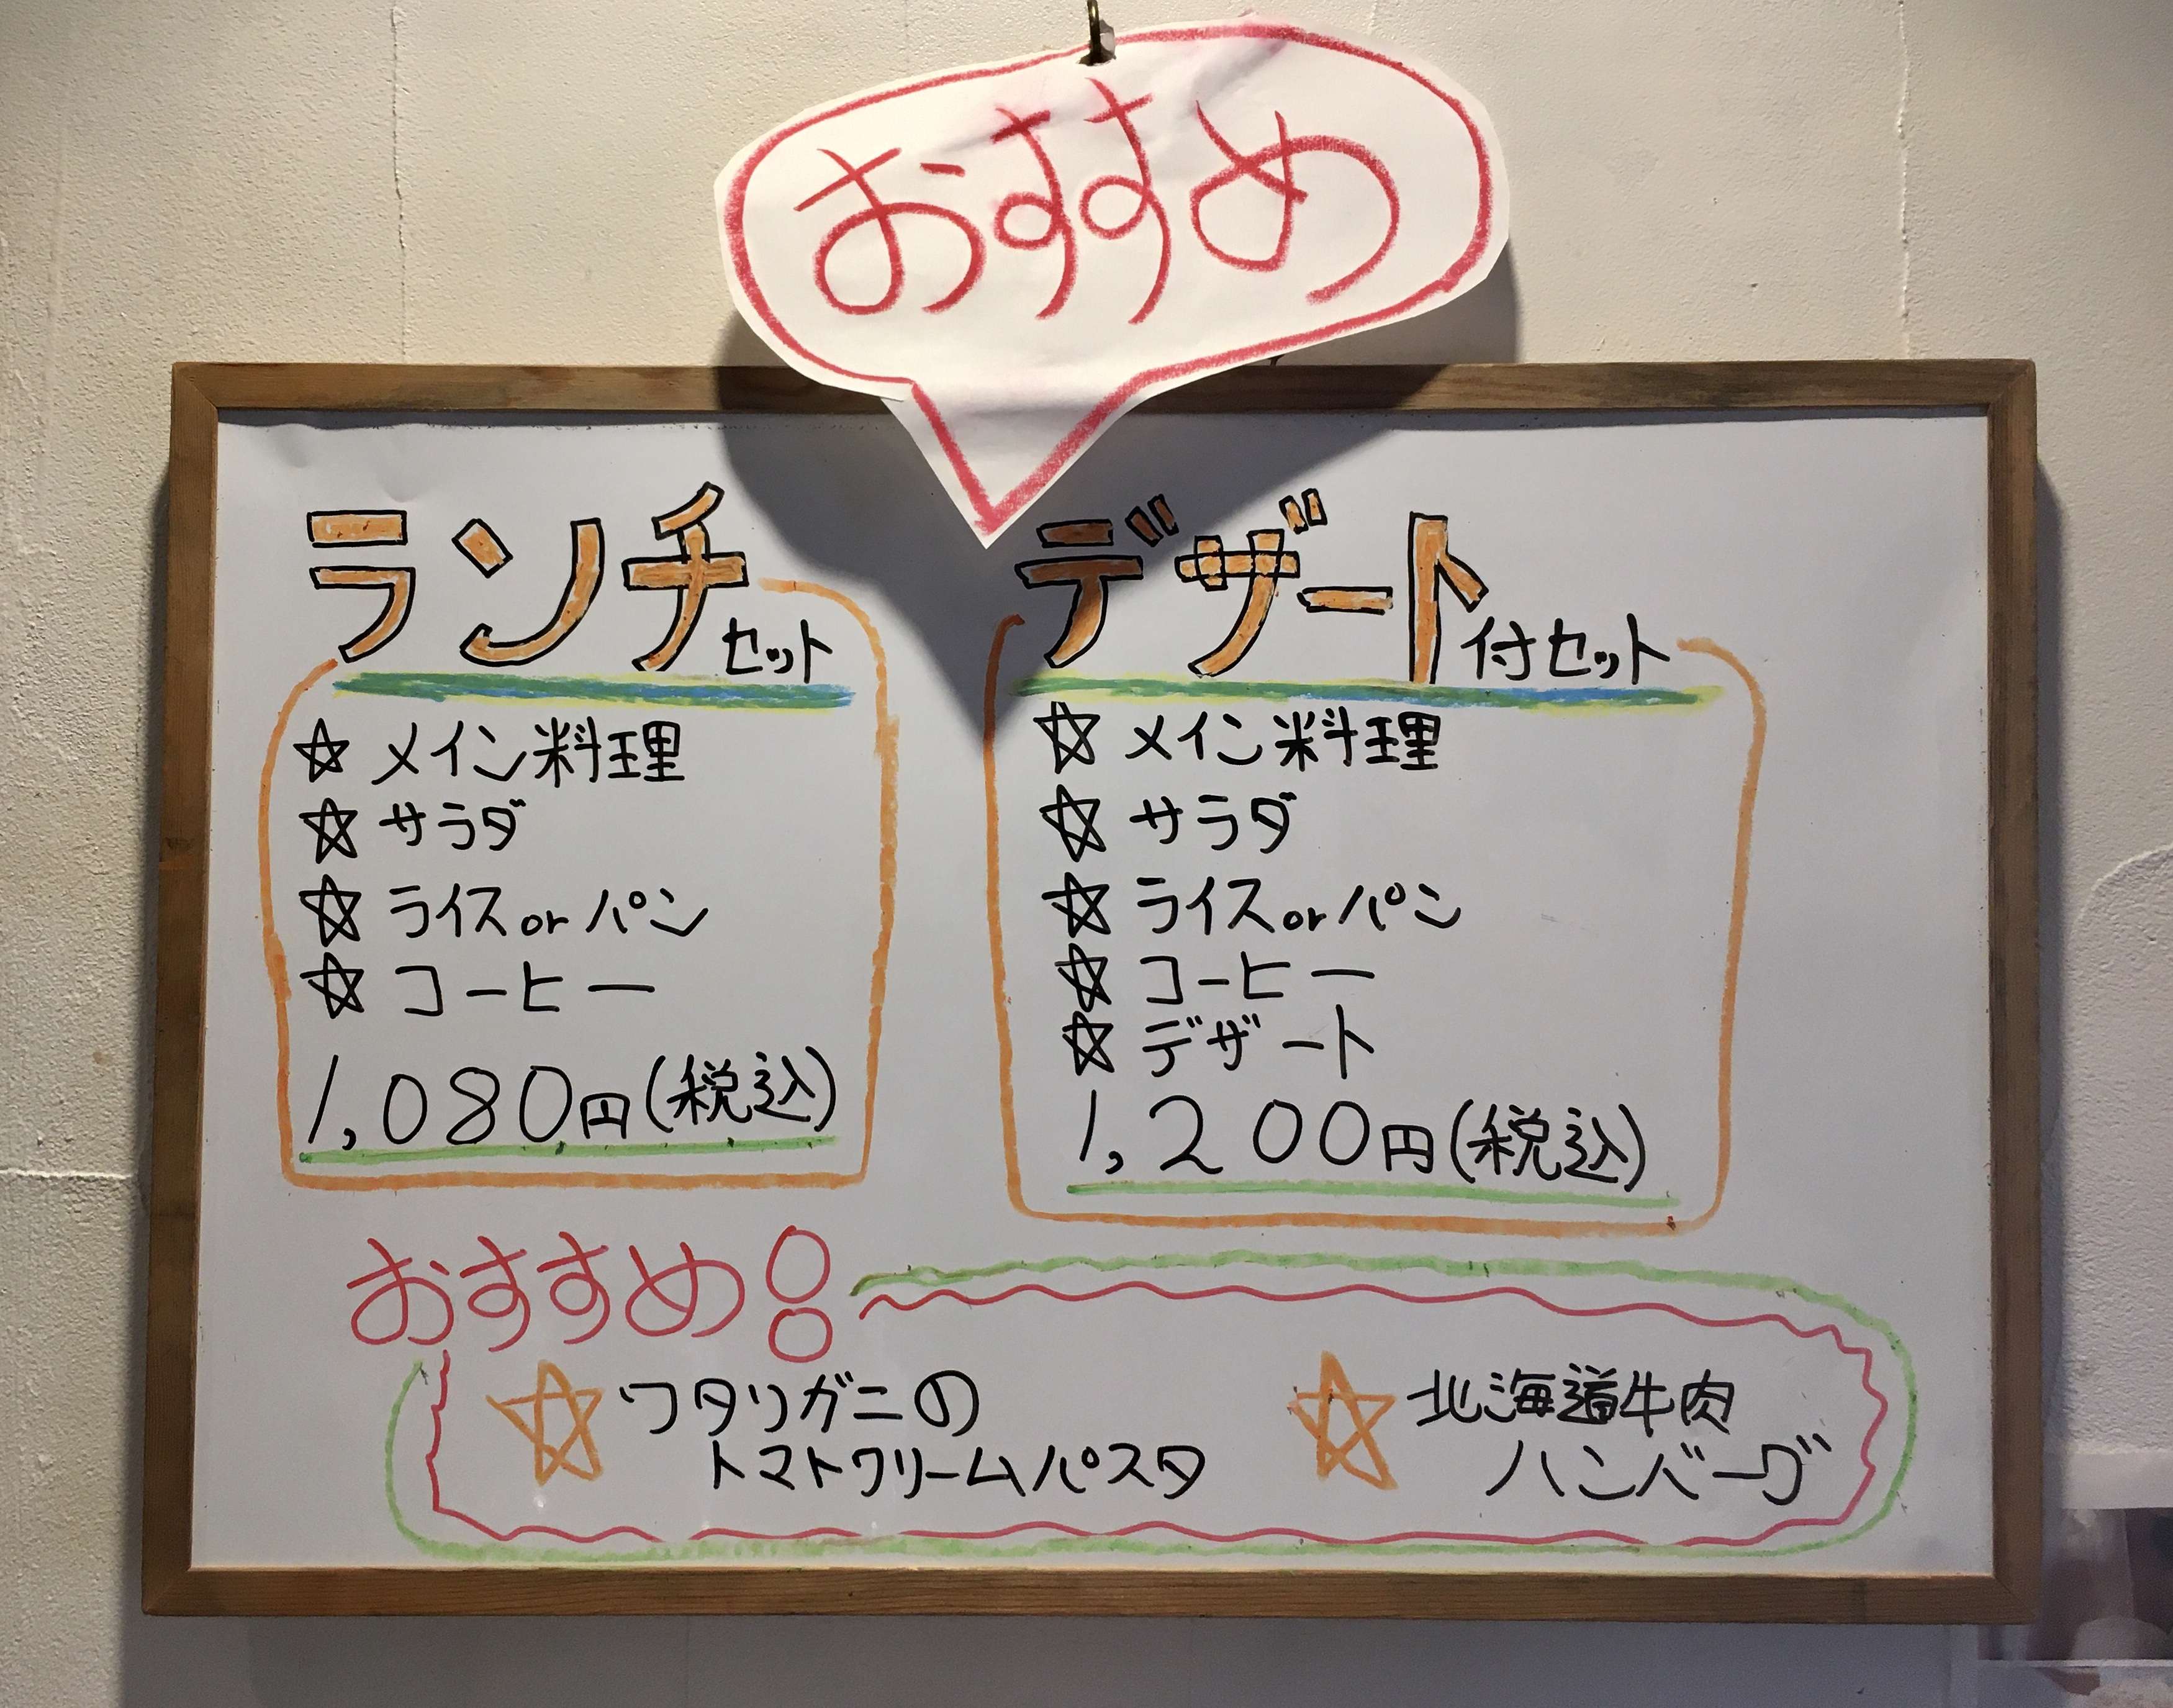 おすすめ
ランチセット
☆ メイン料理
☆ サラダ
☆ ライスorパン
☆ コーヒー
1,080円(税込)
デザート付セット
☆ メイン料理
☆ サラダ
☆ ライスorパン
☆ コーヒー
☆ デザート
1,200円(税込)
おすすめ
☆ ワタリガニの
トマトクリームパスタ
☆ 北海道牛肉
ハンバーグ